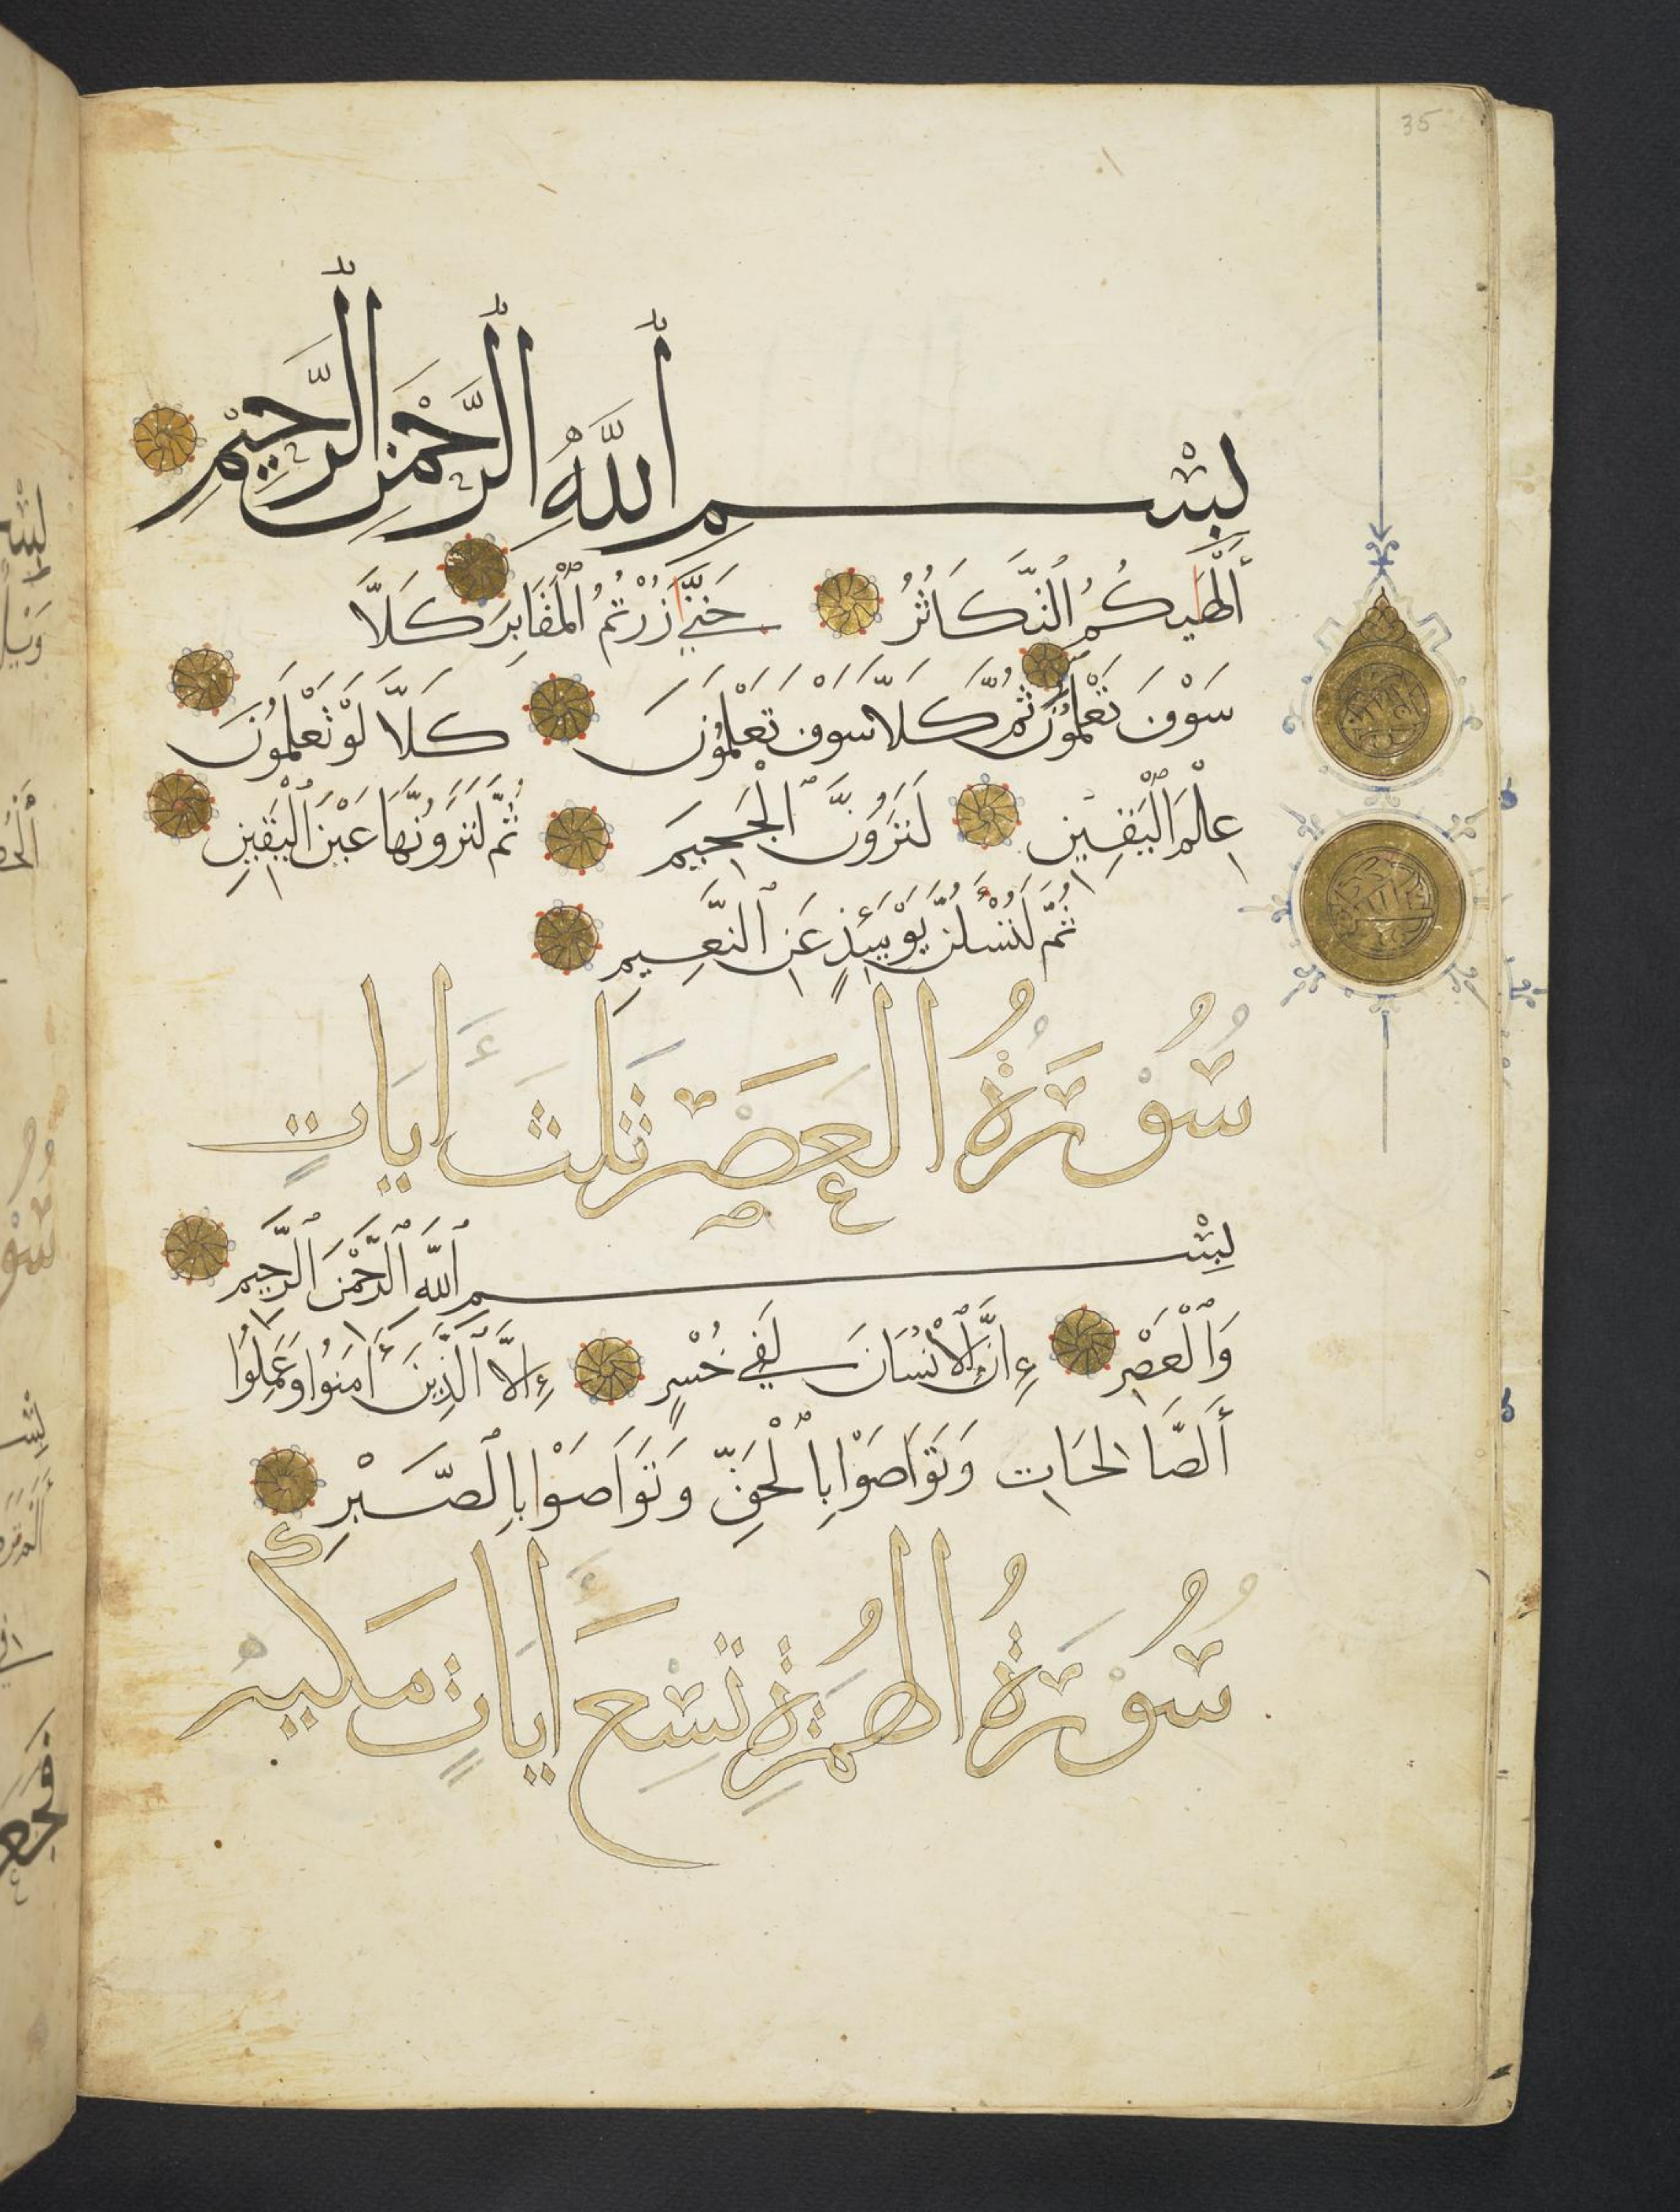 35
بِسْمِ ٱللَّهِ ٱلرَّحْمَٰنِ ٱلرَّحِيمِ
أَلْهَيكُمُ ٱلتَّكَاثُرُ حَتَّىٰ زُرْتُمُ ٱلْمَقَابِرَ كَلَّا
سَوْفَ تَعْلَمُونَ ثُمَّ كَلَّا سَوْفَ تَعْلَمُونَ كَلَّا لَوْ تَعْلَمُونَ
عِلْمَ ٱلْيَقِينِ لَتَرَوُنَّ ٱلْجَحِيمَ ثُمَّ لَتَرَوُنَّهَا عَيْنَ ٱلْيَقِينِ
ثُمَّ لَتُسْـَٔلُنَّ يَوْمَئِذٍ عَنِ ٱلنَّعِيمِ
سُوْرَةُ الْعَصْرِ ثَلٰثَ أٰيَاتٍ
بِسْمِ ٱللَّهِ ٱلرَّحْمَٰنِ ٱلرَّحِيمِ
وَٱلْعَصْرِ إِنَّ ٱلْإِنْسَانَ لَفِي خُسْرٍ إِلَّا ٱلَّذِينَ ءَامَنُوا وَعَمِلُوا
ٱلصَّالِحَاتِ وَتَوَاصَوْا بِٱلْحَقِّ وَتَوَاصَوْا بِٱلصَّبْرِ
سُوْرَةُ الْهُمَزَةِ تِسْعَ أٰيَاتٍ مَكِّيَّه